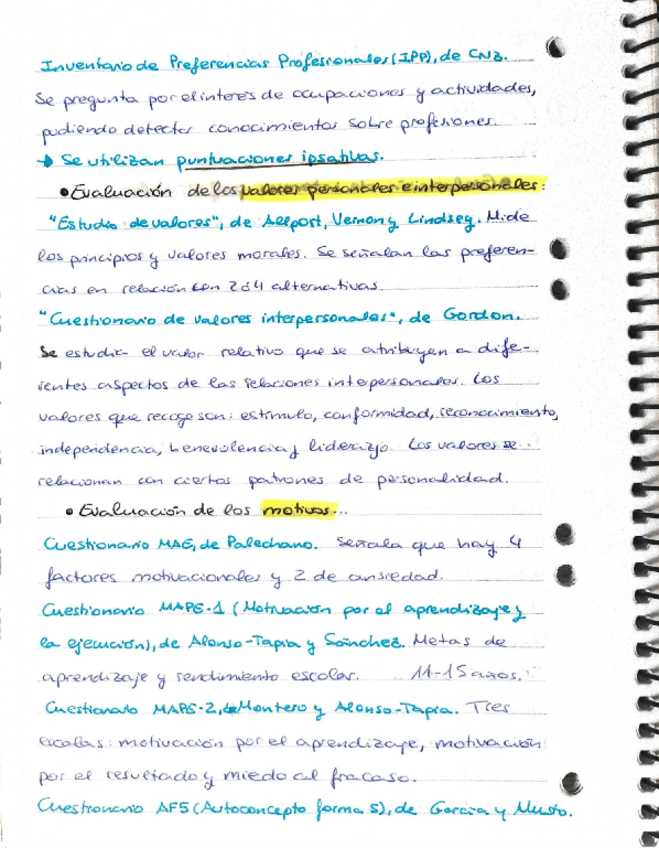 Inventario de Preferencias Profesionales (IPP), de CNB.
Se pregunta por el interés de ocupaciones y actividades,
pudiendo detectar conocimientos sobre profesiones.
→ Se utilizan puntuaciones ipsativas.
• Evaluación de los valores personales e interpersonales:
"Estudio de valores", de Allport, Vernon y Lindsey. Mide
los principios y valores morales. Se señalan las preferen-
cias en relación con 2 ó 4 alternativas.
"Cuestionario de valores interpersonales", de Gordon.
Se estudia el valor relativo que se atribuyen a dife-
rentes aspectos de las relaciones interpersonales. Los
valores que recoge son: estímulo, conformidad, reconocimiento,
independencia, benevolencia y liderazgo. Los valores se
relacionan con ciertos patrones de personalidad.
• Evaluación de los motivos...
Cuestionario MAE, de Pelechano. Señala que hay 4
factores motivacionales y 2 de ansiedad.
Cuestionario MAPE-1 (Motivación por el aprendizaje y
la ejecución), de Alonso-Tapia y Sánchez. Metas de
aprendizaje y rendimiento escolar. 11-15 años.
Cuestionario MAPE-2, de Montero y Alonso-Tapia. Tres
escalas: motivación por el aprendizaje, motivación
por el resultado y miedo al fracaso.
Cuestionario AF5 (Autoconcepto forma 5), de García y Musto.